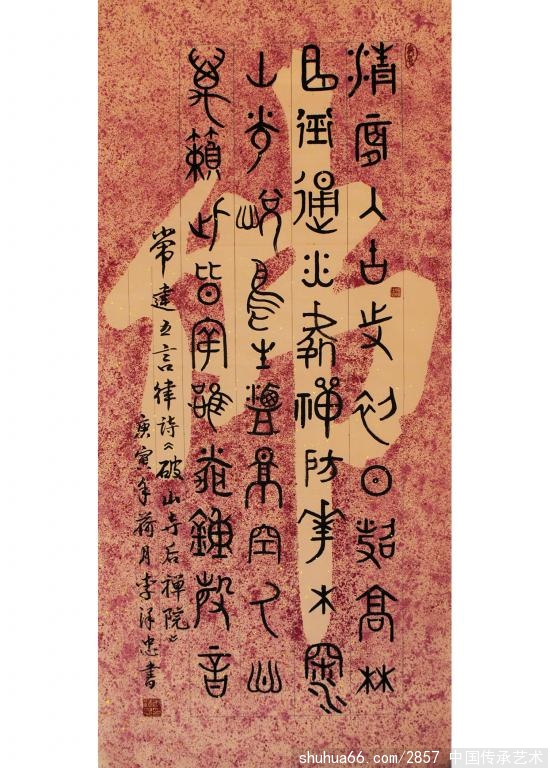 佛
清晨入古寺初日照高林
曲徑通幽處禪房花木深
山光悅鳥性潭影空人心
萬籟此皆寂鐘磬音
常建五言律诗《破山寺后禅院》
庚寅年荷月李泽忠書
shuhua66.com/2857 中国传承艺术